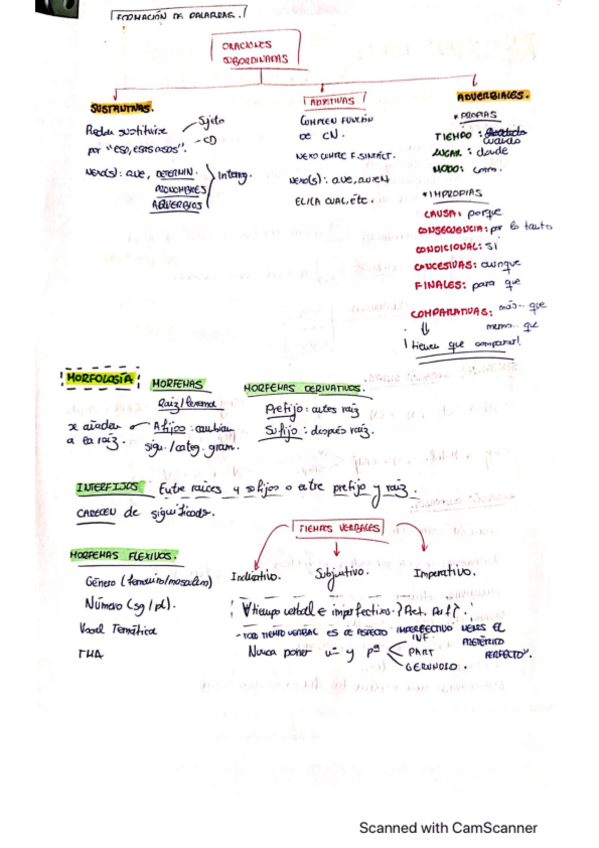 FORMACIÓN DE PALABRAS.
ORACIONES
SUBORDINADAS
SUSTANTIVAS.
Pueden sustituirse
por "eso, esas cosas".
Sujeto
CD
NEXO(S): QUE, DETERMIN.
PRONOMBRES
ADVERBIOS
Interrog.
ADJETIVAS
CUMPLEN FUNCIÓN
DE CN.
NEXO CUMPLE F. SINTÁCT.
NEXO(S): QUE, QUIEN
EL/LA CUAL, etc.
ADVERBIALES.
* PROPIAS
TIEMPO: cuando
LUGAR: donde
MODO: como.
* IMPROPIAS
CAUSA: porque
CONSECUENCIA: por lo tanto
CONDICIONAL: si
CONCESIVAS: aunque
FINALES: para que
COMPARATIVAS: más... que
menos... que
¡tienes que comparar!
MORFOLOGÍA
MORFEMAS
Raíz/lexema
se añaden
a la raíz.
Afijos: cambian
sign./categ. gram.
MORFEMAS DERIVATIVOS.
Prefijo: antes raíz
Sufijo: después raíz.
INTERFIJOS Entre raíces y sufijos o entre prefijo y raíz.
CARECEN de significado.
MORFEMAS FLEXIVOS.
Género (femenino/masculino)
Número (sg/pl).
Vocal Temática
TMA
TIEMPOS VERBALES
Indicativo.
Subjuntivo.
Imperativo.
∀ tiempo verbal e imperfectivo
- TODO TIEMPO VERBAL ES DE ASPECTO IMPERFECTIVO MENOS EL
PRETÉRITO
PERFECTO".
Nunca poner nº y pª
INF.
PART
GERUNDIO.
Scanned with CamScanner